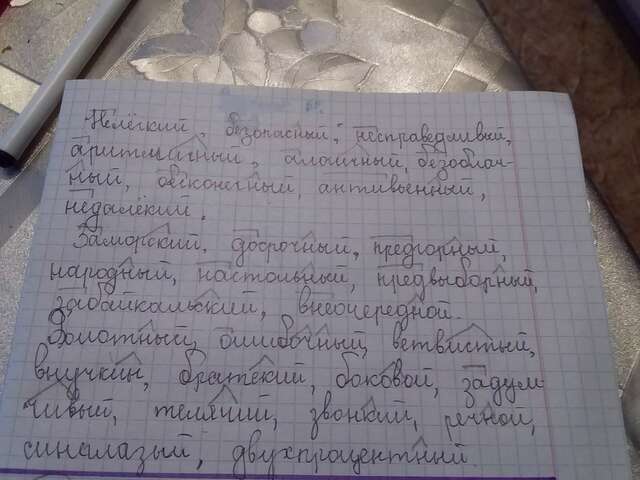 Нелёгкий, безопасный, несправедливый,
аритмичный, алогичный, безоблач-
ный, бесконечный, антивоенный,
недалёкий.
Заморский, досрочный, предгорный,
народный, настольный, предвыборный,
забайкальский, внеочередной.
Болотный, ошибочный, ветвистый,
внучкин, братский, боковой, задум-
чивый, телячий, звонкий, речной,
синеглазый, двухпроцентный.